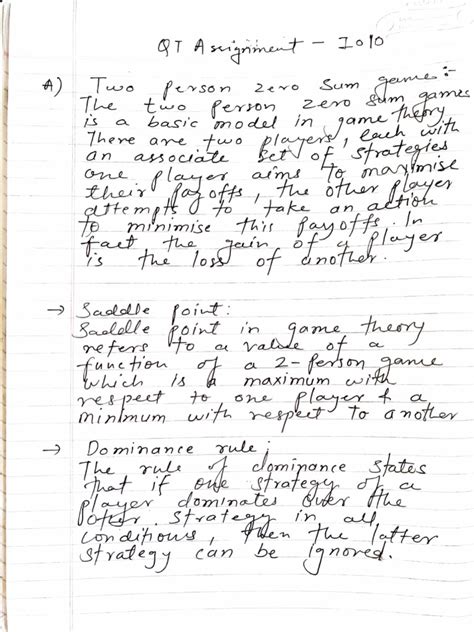 QT Assignment - 1010
A) Two Person zero Sum games :-
The two Person zero Sum games
is a basic model in game theory
There are two players, each with
an associate set of strategies
one player aims to maximise
their payoffs, the other player
attempts to take an action
to minimise this payoffs. In
fact the gain of a player
is the loss of another.
→ Saddle point :
Saddle point in game theory
refers to a value of a
function of a 2-Person game
which is a maximum with
respect to one player & a
minimum with respect to another
→ Dominance rule ;
The rule of dominance states
that if one strategy of a
player dominates over the
other strategy in all
conditions, then the latter
strategy can be ignored.